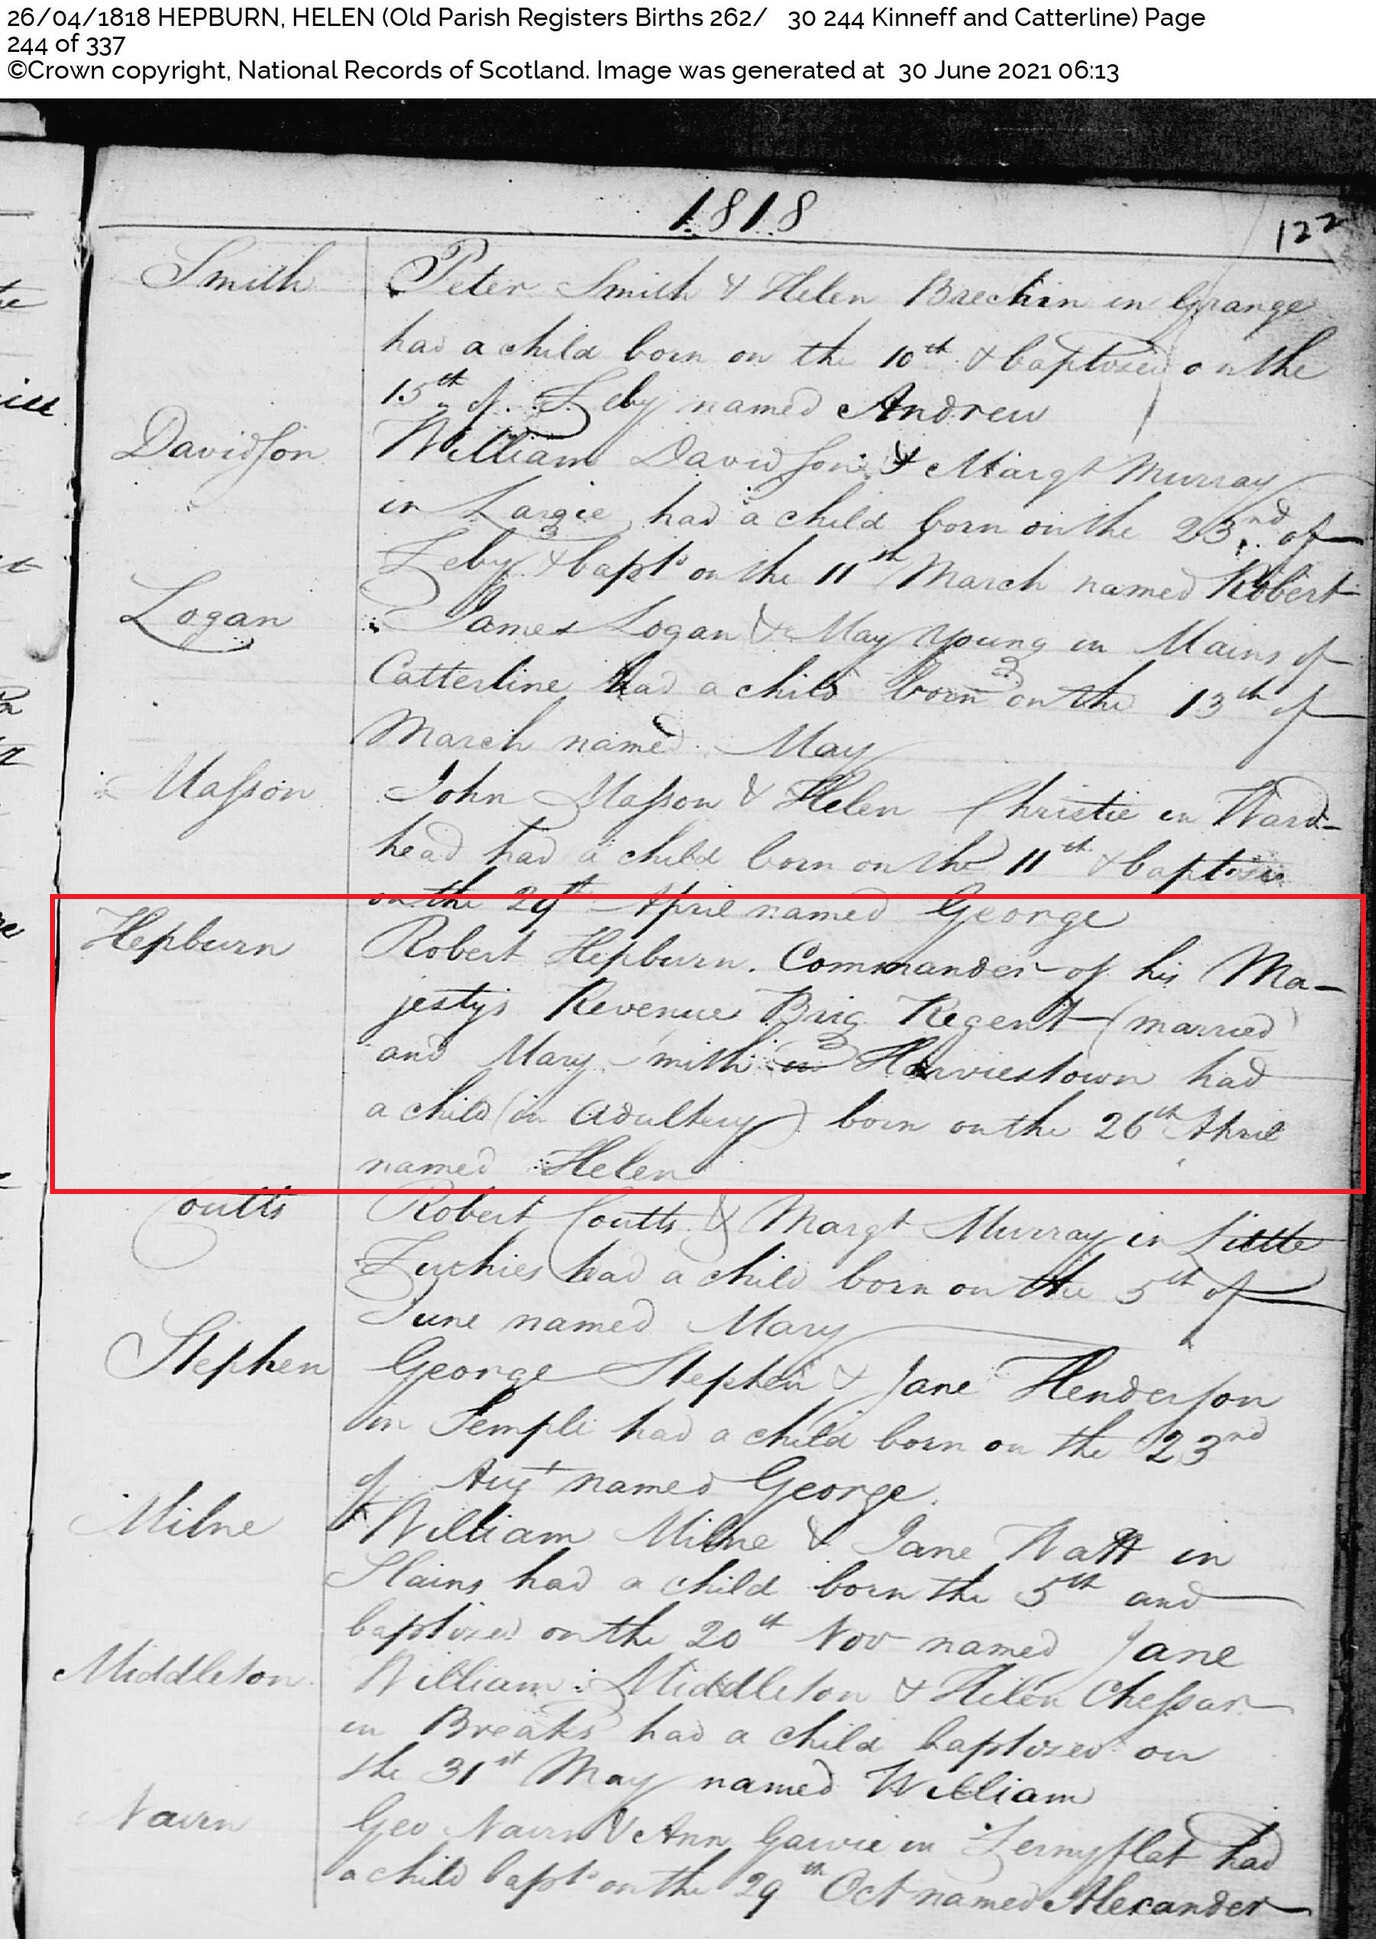 26/04/1818 HEPBURN, HELEN (Old Parish Registers Births 262/ 30 244 Kinneff and Catterline) Page
244 of 337
©Crown copyright, National Records of Scotland. Image was generated at 30 June 2021 06:13
1818
122
Smith Peter Smith & Helen Brechin in Grange
had a child born on the 10th & baptized on the
15th of Feby named Andrew
Davidson William Davidson & Margt Murray
in Largie had a child born on the 23nd of
Feby & bapt on the 11th March named Robert
Logan James Logan & May Young in Mains of
Catterline had a child born on the 13th of
March named May
Masson John Masson & Helen Christie in Ward-
head had a child born on the 11th & baptized
on the 29th April named George
Hepburn Robert Hepburn. Commander of his Ma-
jestys Revenue Brig Regent (married)
and Mary Smith in Harviestown had
a child (in adultery) born on the 26th April
named Helen
Coutts Robert Coutts & Margt Murray in Little
had a child born on the 5th of
June named Mary
Stephen George Stephen & Jane Henderson
in Temple had a child born on the 23nd
of Augt named George
Milne William Milne & Jane Watt in
Slains had a child born the 5th and
baptized on the 20th Nov named Jane
Middleton William Middleton & Helen Chessar
in Breaks had a child baptized on
the 31st May named William
Nairn Geo Nairn & Ann Garvie in Fernyflat had
a child bapt on the 29th Oct named Alexander